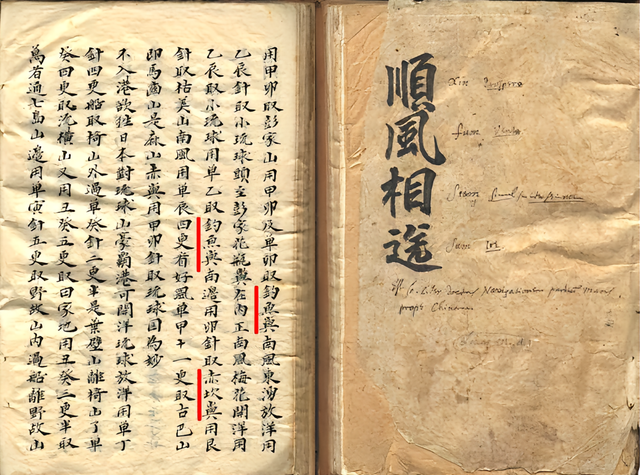 用甲卯取彭家山用甲卯及單卯取釣魚嶼南風東湧放洋用
乙辰針取小琉球頭至彭家花瓶嶼在內正南風梅花開洋用
乙辰取小琉球用單乙取釣魚嶼南邊用卯針取赤坎嶼用艮
針取枯美山南風用單辰四更看好風單甲十一更取古巴山
即馬齒山是麻山赤嶼用甲卯針取琉球國為妙
不入港欲往日本對琉球山豪霸港可開洋琉球放洋用單丁
針四更船取椅山外過單癸針二更半是葉壁山離椅山了單
癸四更取流橫山又用丑癸五更取田家地用丑癸三更半取
萬若通七島山邊用單寅針五更取野故山內過船離野故山
順風相送
Xin
fum Vento
Siam
Sum
Liber docens Navigationem partim Maris
propis Chinarum